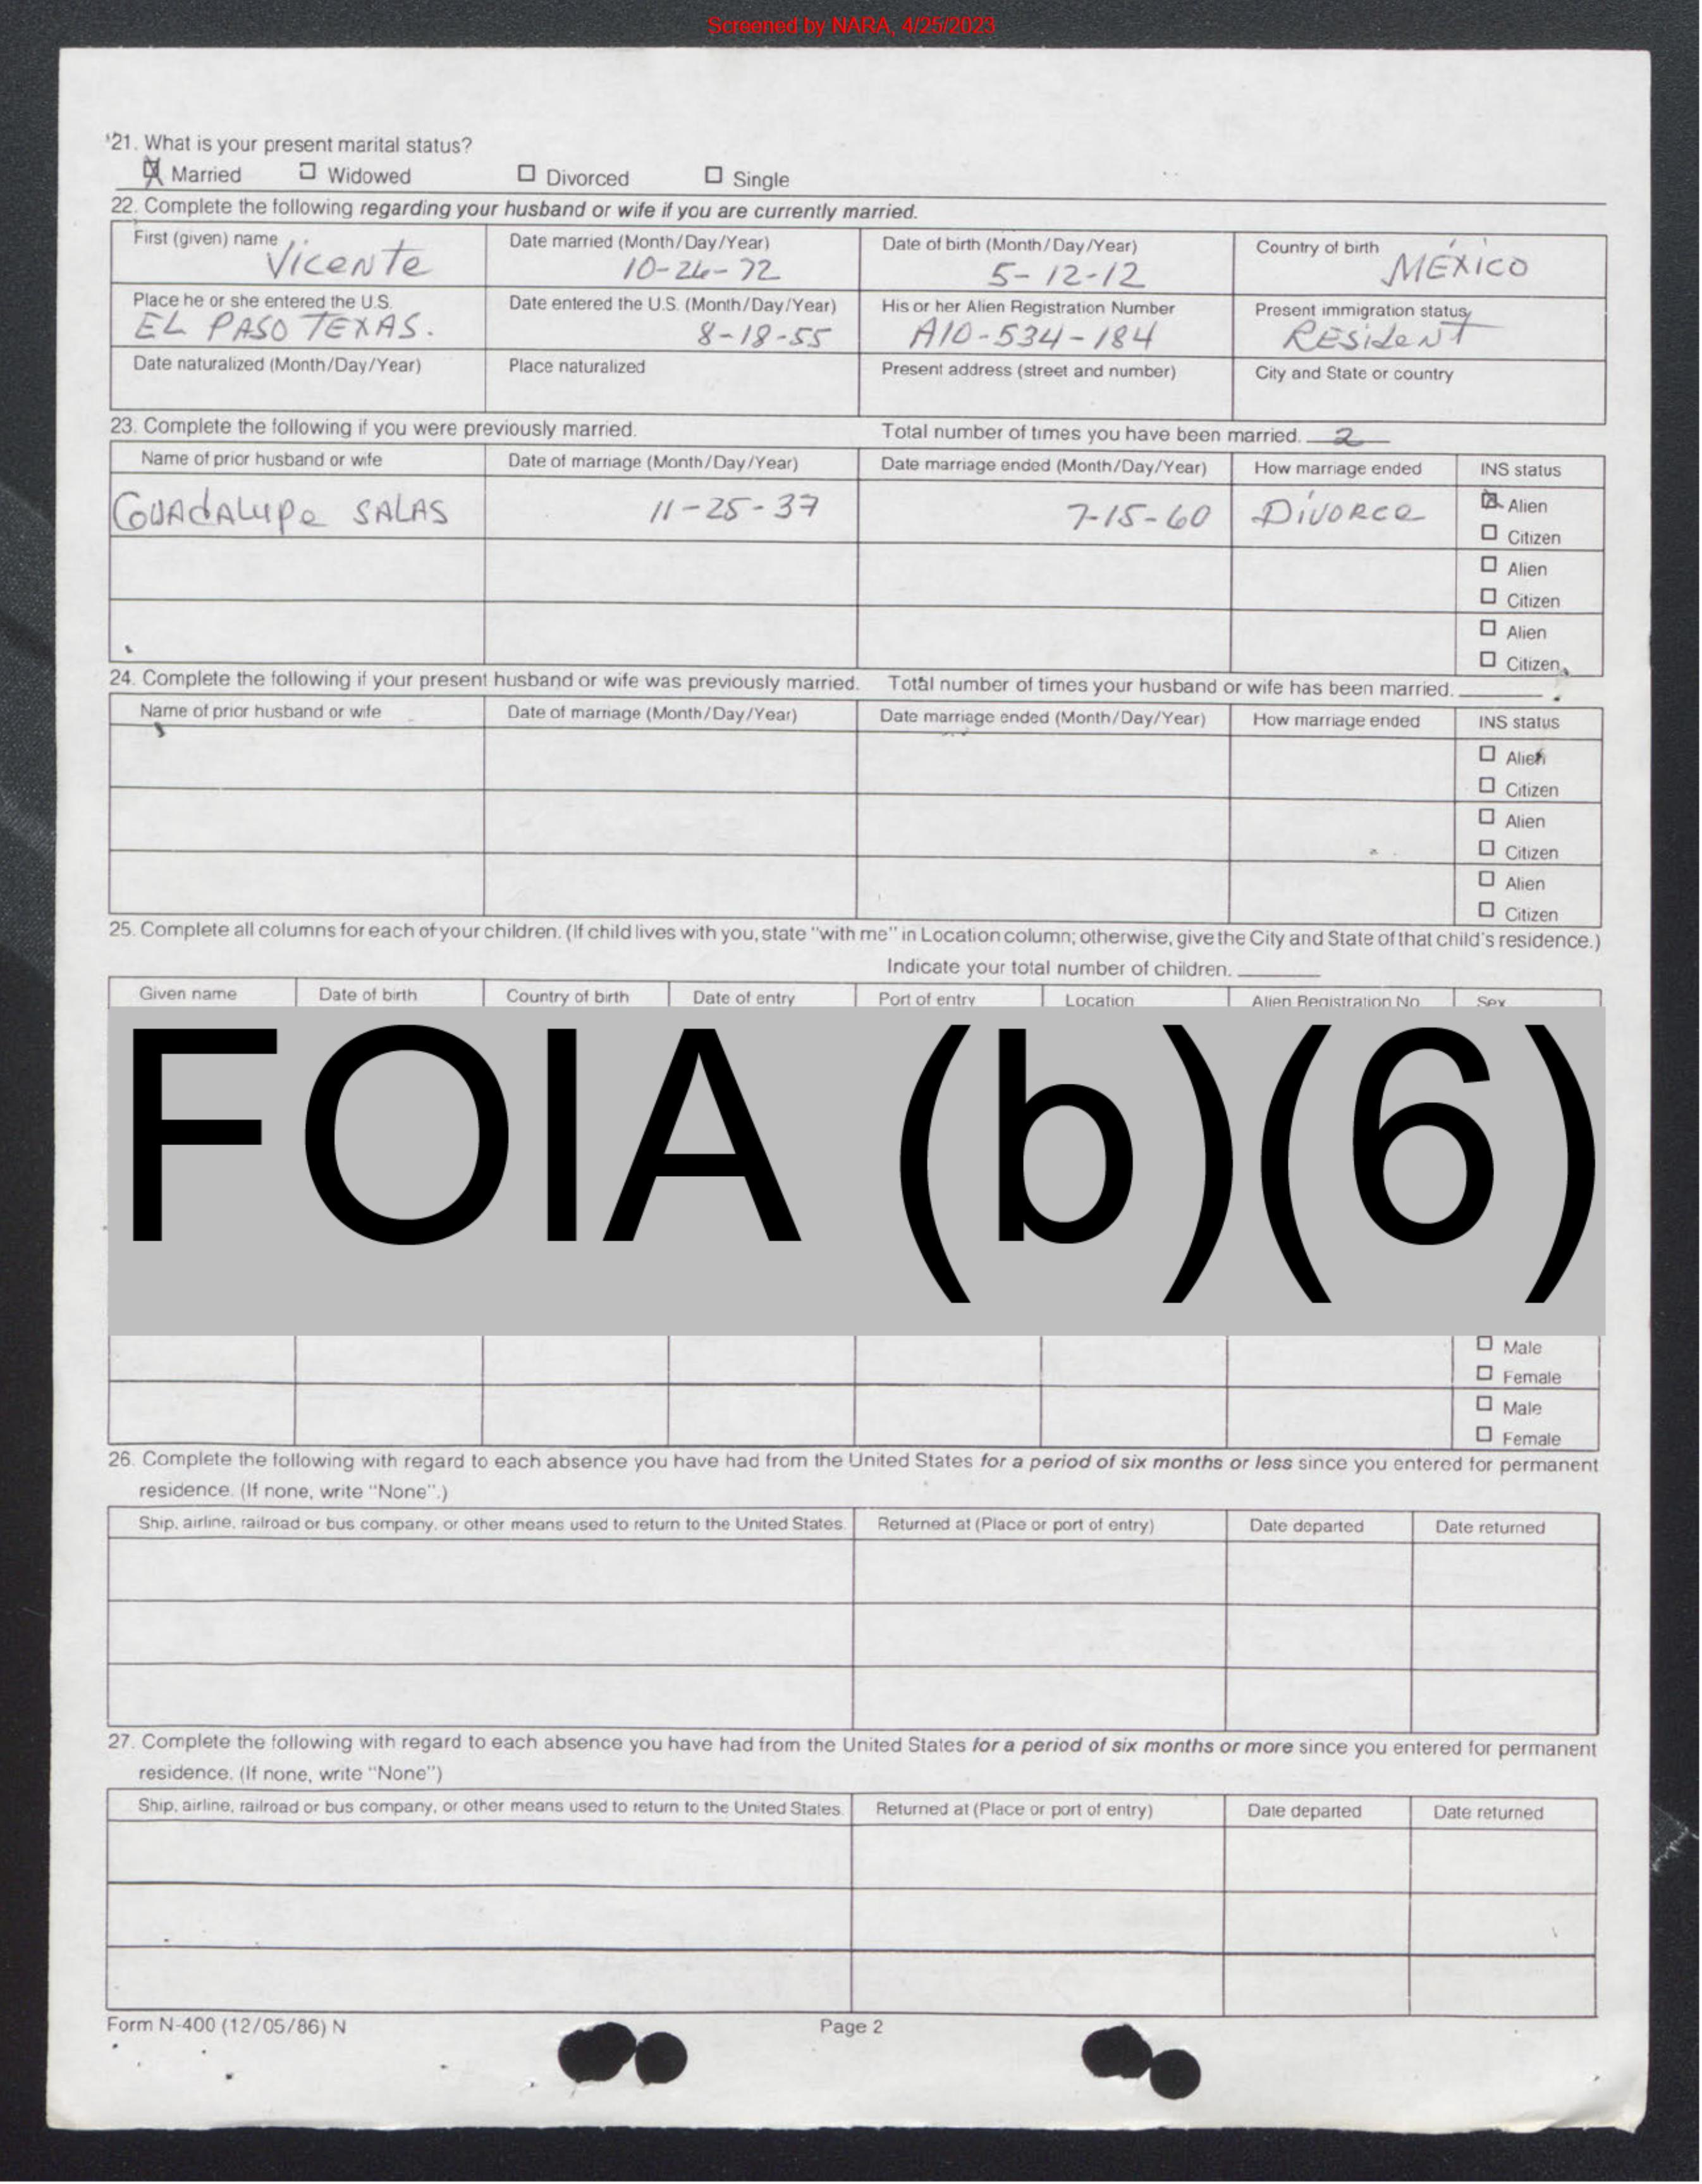 Screened by NARA, 4/25/2023
21. What is your present marital status?
☒ Married ☐ Widowed ☐ Divorced ☐ Single
22. Complete the following regarding your husband or wife if you are currently married.
First (given) name Date married (Month/Day/Year) Date of birth (Month/Day/Year) Country of birth
Vicente 10-26-72 5-12-12 MÉXICO
Place he or she entered the U.S. Date entered the U.S. (Month/Day/Year) His or her Alien Registration Number Present immigration status
EL PASO TEXAS. 8-18-55 A10-534-184 RESideNT
Date naturalized (Month/Day/Year) Place naturalized Present address (street and number) City and State or country
23. Complete the following if you were previously married. Total number of times you have been married. 2
Name of prior husband or wife Date of marriage (Month/Day/Year) Date marriage ended (Month/Day/Year) How marriage ended INS status
GUAdALupe SALAS 11-25-37 7-15-60 DiVORce ☒ Alien
☐ Citizen
☐ Alien
☐ Citizen
☐ Alien
☐ Citizen
24. Complete the following if your present husband or wife was previously married. Total number of times your husband or wife has been married.
Name of prior husband or wife Date of marriage (Month/Day/Year) Date marriage ended (Month/Day/Year) How marriage ended INS status
☐ Alien
☐ Citizen
☐ Alien
☐ Citizen
☐ Alien
☐ Citizen
25. Complete all columns for each of your children. (If child lives with you, state "with me" in Location column; otherwise, give the City and State of that child's residence.)
Indicate your total number of children.
Given name Date of birth Country of birth Date of entry Port of entry Location Alien Registration No Sex
FOIA (b)(6)
☐ Male
☐ Female
☐ Male
☐ Female
26. Complete the following with regard to each absence you have had from the United States for a period of six months or less since you entered for permanent
residence. (If none, write "None".)
Ship, airline, railroad or bus company, or other means used to return to the United States. Returned at (Place or port of entry) Date departed Date returned
27. Complete the following with regard to each absence you have had from the United States for a period of six months or more since you entered for permanent
residence. (If none, write "None")
Ship, airline, railroad or bus company, or other means used to return to the United States. Returned at (Place or port of entry) Date departed Date returned
Form N-400 (12/05/86) N Page 2